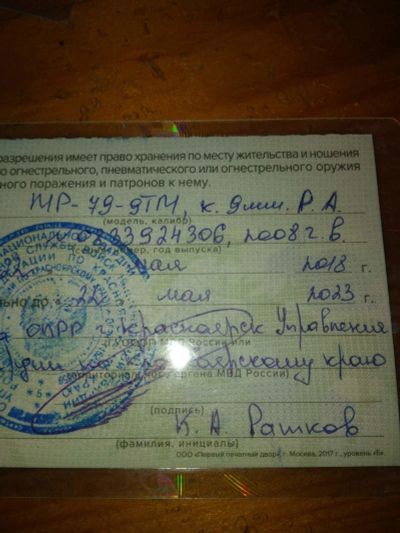 разрешения имеет право хранения по месту жительства и ношения
о огнестрельного, пневматического или огнестрельного оружия
ного поражения и патронов к нему.
МР-79-9ТМ, к. 9мм. Р.А.
(модель, калибр)
0833924306, 2008 г.в.
номер, год выпуска)
22 мая 2018 г.
ьно до « 22 » мая 2023 г.
ОЛРР г. Красноярск Управления
МВД России или
по Красноярскому краю
территориального органа МВД России)
(подпись)
К. А. Рашков
(фамилия, инициалы)
ООО «Первый печатный двор», г. Москва, 2017 г., уровень «Б».